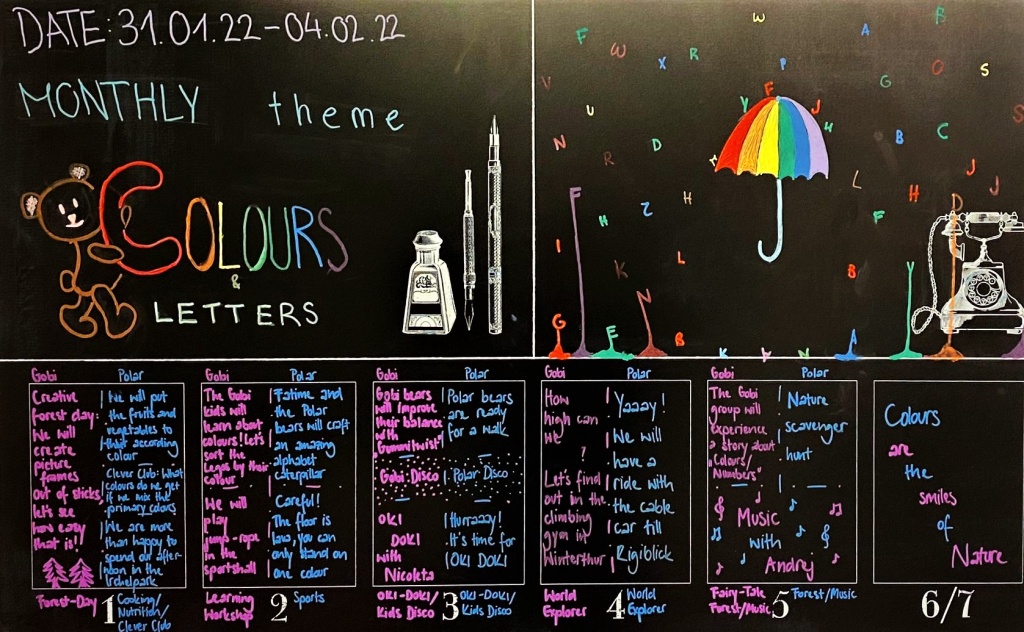 DATE: 31.01.22-04.02.22
MONTHLY theme
COLOURS
&
LETTERS
Gobi
Creative
forest clay:
We will
create
picture
frames
out of sticks,
let's see
how easy
that is!
Forest-Day
1
Polar
We will put
the fruits and
vegetables to
according
colour
Clever Club: What
colours do we get
if we mix the
primary colors
We are more
than happy to
spend our after-
noon in the
Irchelpark
Cooking/
Nutrition/
Clever Club
Gobi
The Gobi
kids will
learn about
colours! Let's
sort the
Legos by their
colour
We will
play
jump-rope
in the
sportshall
Learning
Workshop
2
Polar
Fatime and
the Polar
bears will craft
an amazing
alphabet
caterpillar
Careful!
The floor is
lava, you can
only stand on
one colour
Sports
Gobi
Gobi bears
will improve
their balance
with
"Gummitwist"
Gobi Disco
OKI
DOKI
with
Nicoleta
OKI-DOKI/
Kids Disco
3
Polar
Polar bears
are ready
for a walk
Polar Disco
Hurraaay!
It's time for
OKI DOKI
OKI-DOKI/
Kids Disco
Gobi
How
high can
we
?
Let's find
out in the
climbing
gym in
Winterthur
World
Explorer
4
Polar
Yaaay!
We will
have a
ride with
the cable
car till
Rigiblick
World
Explorer
Gobi
The Gobi
group will
experience
a story about
"Colours/
Numbers"
Polar
Nature
scavenger
hunt
Music
with
Andrej
Fairy-Tale
Forest/Music
5
Forest/Music
Colours
are
the
smiles
of
Nature
6/7